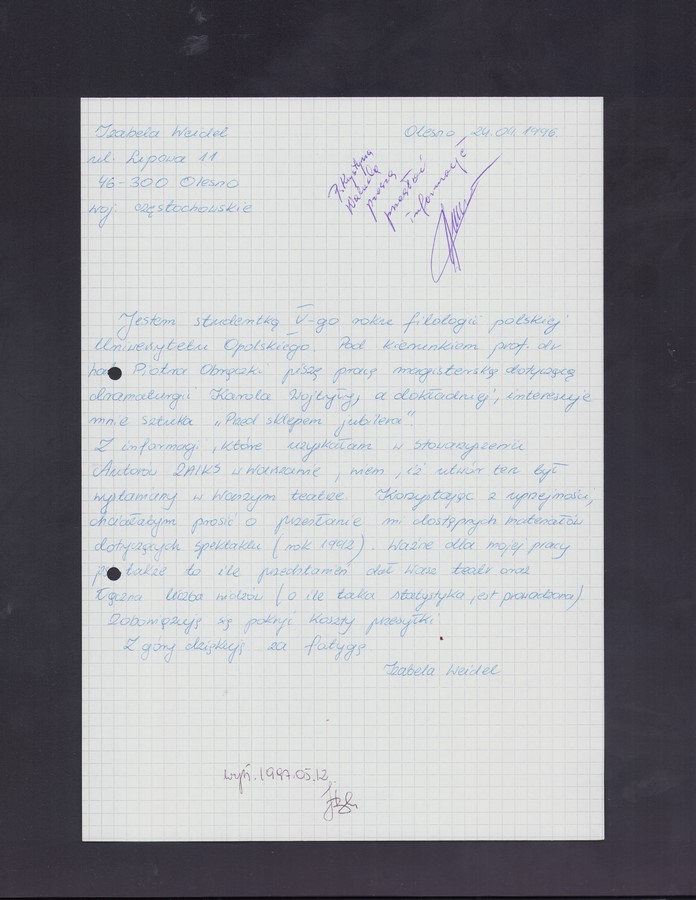 Izabela Weidel
Olesno, 24.04.1996.
ul. Lipowa 11
46-300 Olesno
woj. częstochowskie
P. Krystyna
proszę
przesłać
informację
Jestem studentką V-go roku filologii polskiej
Uniwersytetu Opolskiego. Pod kierunkiem prof. dr
hab Piotra Obrączki piszę pracę magisterską dotyczącą
dramaturgii Karola Wojtyły, a dokładniej, interesuje
mnie sztuka „Przed sklepem jubilera”.
Z informacji, które uzyskałam w Stowarzyszeniu
Autorów ZAIKS w Warszawie, wiem, iż utwór ten był
wystawiany w Waszym teatrze. Korzystając z uprzejmości,
chciałabym prosić o przesłanie mi dostępnych materiałów
dotyczących spektaklu (rok 1992). Ważne dla mojej pracy
jest także to ile przedstawień dał Wasz teatr oraz
łączna liczba widzów (o ile taka statystyka jest prowadzona).
Zobowiązuję się pokryć koszty przesyłki.
Z góry dziękuję za fatygę
Izabela Weidel
wyń. 1997.05.12.